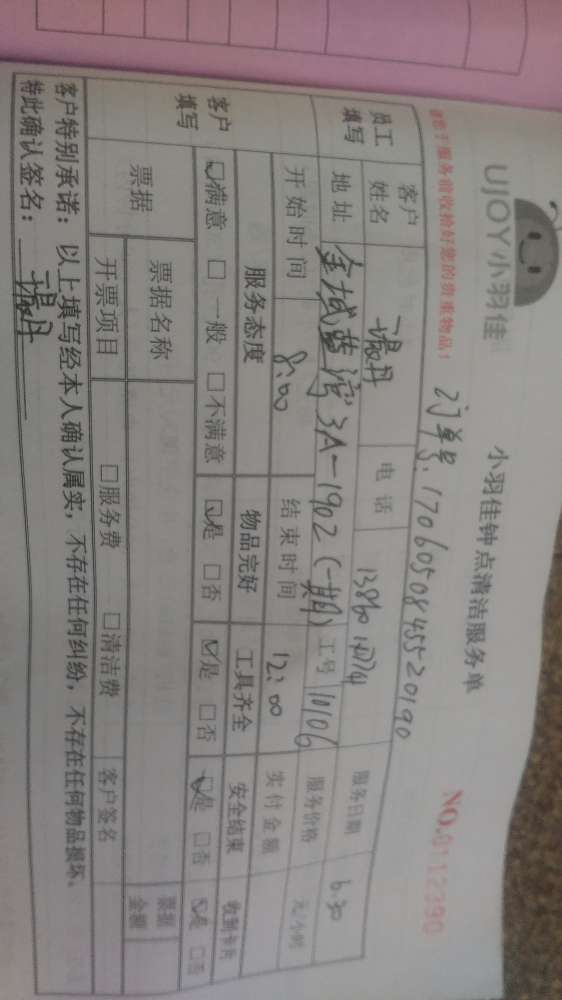 UJOY小羽佳
小羽佳钟点清洁服务单
NO.0112390
请您于服务前收拾好您的贵重物品!
订单号:1706050845520190
员工填写
客户姓名
电话
服务日期 6.30
地址 金域蓝湾3A-1902(一期)
工号 11106
服务价格 元/小时
开始时间 8:00
结束时间 12:00
实付金额
客户填写
服务态度 物品完好 工具齐全 安全结束 收到卡片
☑满意 □一般 □不满意 ☑是 □否 ☑是 □否 ☑是 □否 ☑是 □否
票据
票据名称
票据金额
开票项目 □服务费 □清洁费 客户签名
客户特别承诺:以上填写经本人确认属实,不存在任何纠纷,不存在任何物品损坏。
特此确认签名: